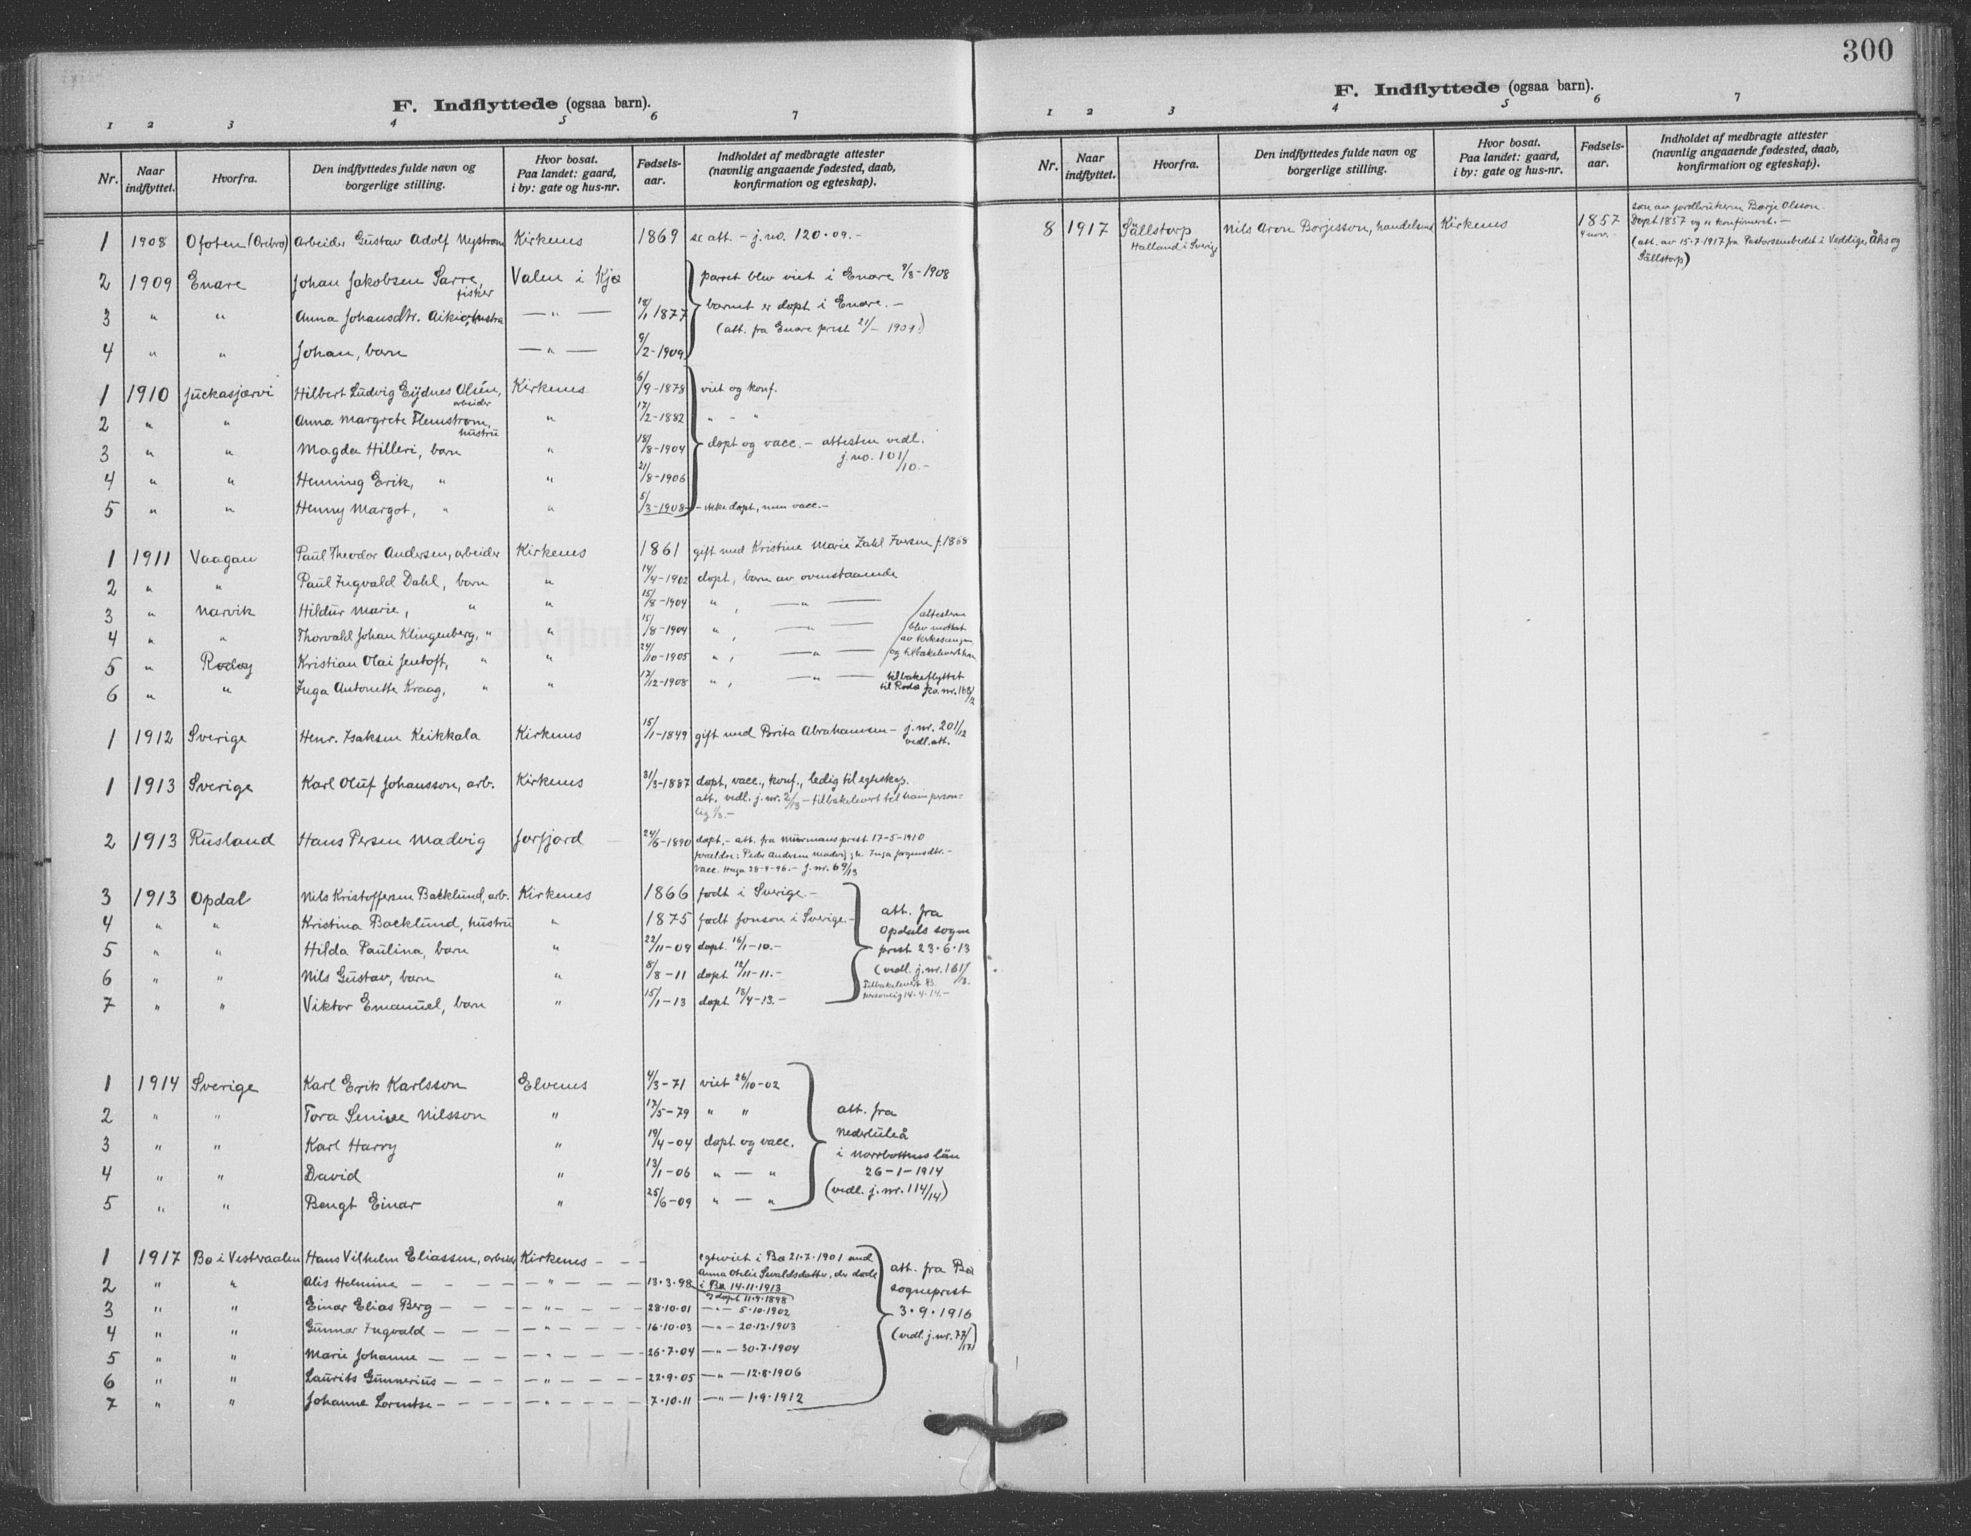 300
F. Indflyttede (ogsaa barn).
1 2 3 4 5 6 7
Nr. Naar indflyttet. Hvorfra. Den indflyttedes fulde navn og borgerlige stilling. Hvor bosat. Paa landet: gaard, i by: gate og hus-nr. Fødsels-aar. Indholdet af medbragte attester (navnlig angaaende fødested, daab, konfirmation og egteskap).
1 1908 Ofoten (Örebro) Arbeider Gustav Adolf Nystrom Kirkenes 1869 se att. – j.no. 120·09.–
2 1909 Enare Johan Jakobsen Sarre, fisker Valen i Kjø parret blev viet i Enare /3-1908
3 " " Anna Johansdtr. Aikio, hustru — " — 18/1 1877 barnet er døpt i Enare. –
(att. fra Enare prest 21/ – 1909)
4 " " Johan, barn — " — 9/2-1909
1 1910 Juckasjærvi Hilbert Ludvig Eijdnes Olsén, arbeider Kirkenes 6/9-1878 viet og konf.
2 " " Anna Margrete Flemstrøm, hustru " 17/2-1882 " – "
3 " " Magda Hilleri, barn " 18/8-1904 døpt og vacc. – attesten vedl.
j.no. 101/10.–
4 " " Henning Erik, " " 21/8-1906
5 " " Henny Margot, " " 5/3-1908 – ikke døpt, men vacc. –
1 1911 Vaagan Paul Theodor Andersen, arbeider Kirkenes 1861 gift med Kristine Marie Zahl Iversen f. 1868
2 " " Paul Ingvald Dahl, barn " 14/4-1902 døpt, barn av ovenstaaende
3 " Narvik Hildur Marie, " " 15/8-1904 " , — " —
4 " " Thorvald Johan Klingenberg, " " 15/8-1904 " , — " —
5 " Rødøy Kristian Olai Jentoft, " " 24/10-1905 " , — " —
6 " " Inga Antonette Kraag, " " 17/12-1908 " , — " —
attesterne
blev mottat
av
og tilbakelevert
tilbakeflyttet
til Rødø j.nr. 168/12
1 1912 Sverige Henr. Isaksen Keikkala Kirkenes 15/1-1849 gift med Brita Abrahamsen – j.nr. 201/12
vedl. att.
1 1913 Sverige Karl Oluf Johansson, arb. Kirkenes 31/3-1887 døpt, vacc., konf., ledig til egteskap.
att. vedl. j.nr. 2/13 – tilbakelevert til ham person-
lig 1/3.–
2 1913 Rusland Hans Persen Madvig Jarfjord 24/6-1890 døpt. – att. fra Murmans prest 17-5-1910
forældre: Peder Andersen Madvig, Inga Jørgensdtr. –
vacc. 28-9-96. – j.nr. 69/13
3 1913 Opdal Nils Kristoffersen Backlund, arb. Kirkenes 1866 født i Sverige –
4 " " Kristina Backlund, hustru " 1875 født Jonson i Sverige –
5 " " Hilda Paulina, barn " 22/11-09 døpt 16/1-10.–
6 " " Nils Gustav, barn " 8/8-11 døpt 12/11-11.–
7 " " Viktor Emanuel, barn " 15/1-13 døpt 13/4-13.–
att. fra
Opdals sogne
prest 23·6·13
(vedl. j.nr. 161/13.
Tilbakelevert
personlig 14·4·14.–
1 1914 Sverige Karl Erik Karlsson Elvenes 4/3-71 viet 26/10-02
2 " " Tora Nilsson " 17/5-79 " "
3 " " Karl Harry " 19/4-04 døpt og vacc.
4 " " David " 13/1-06 " — "
5 " " Bengt Einar " 25/6-09 " — "
att. fra
Nederluleå
i Norrbottens län
26-1-1914
(vedl. j.nr. 114/14)
1 1917 Bø i Vesteraalen Hans Vilhelm Eliassen, arbeider Kirkenes – – – egteviet i Bø 21·7·1901 med
Anna Otelie Sivaldsdatter, der døde
i Bø 14·11·1913
2 " " Alis Helmine – – – " – – – 13·3·98 døpt 11·9·1898
3 " " Einar Elias Berg – – – " – – – 28·10·01 — " — 5·10·1902
4 " " Gunnar Ingvald – – – " – – – 16·10·03 — " — 20·12·1903
5 " " Marie Johanne – – – " – – – 26·7·04 — " — 30·7·1904
6 " " Laurits Gunnerius – – – " – – – 22·9·05 — " — 12·8·1906
7 " " Johanne Lorentse – – – " – – – 7·10·11 — " — 1·9·1912
att. fra Bø
sogneprest
3·9·1916
(vedl. j.nr. 77/17)
F. Indflyttede (ogsaa barn).
1 2 3 4 5 6 7
Nr. Naar indflyttet. Hvorfra. Den indflyttedes fulde navn og borgerlige stilling. Hvor bosat. Paa landet: gaard, i by: gate og hus-nr. Fødsels-aar. Indholdet af medbragte attester (navnlig angaaende fødested, daab, konfirmation og egteskap).
8 1917 Sällstorp Halland i Sverig Nils Aron Börjesson, handelsmd Kirkenes 1857 4 nov. – søn av jordbrukeren Börje Olsson.
Døpt 1857 og konfirmeret. –
(att. av 15·7·1917 fra Pastorsembetet i Veddige, Ås og
Sällstorp)